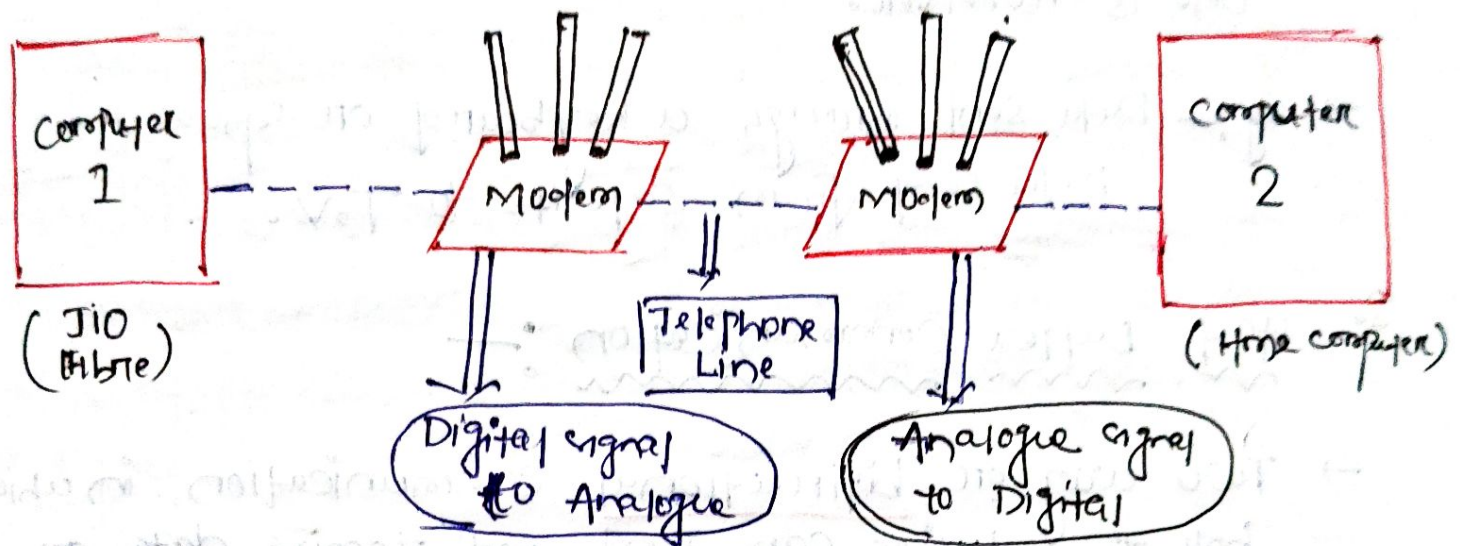 Computer
1
(JIO
Fibre)
Modem
Modem
Computer
2
(Home computer)
Telephone
Line
Digital signal
to Analogue
Analogue signal
to Digital